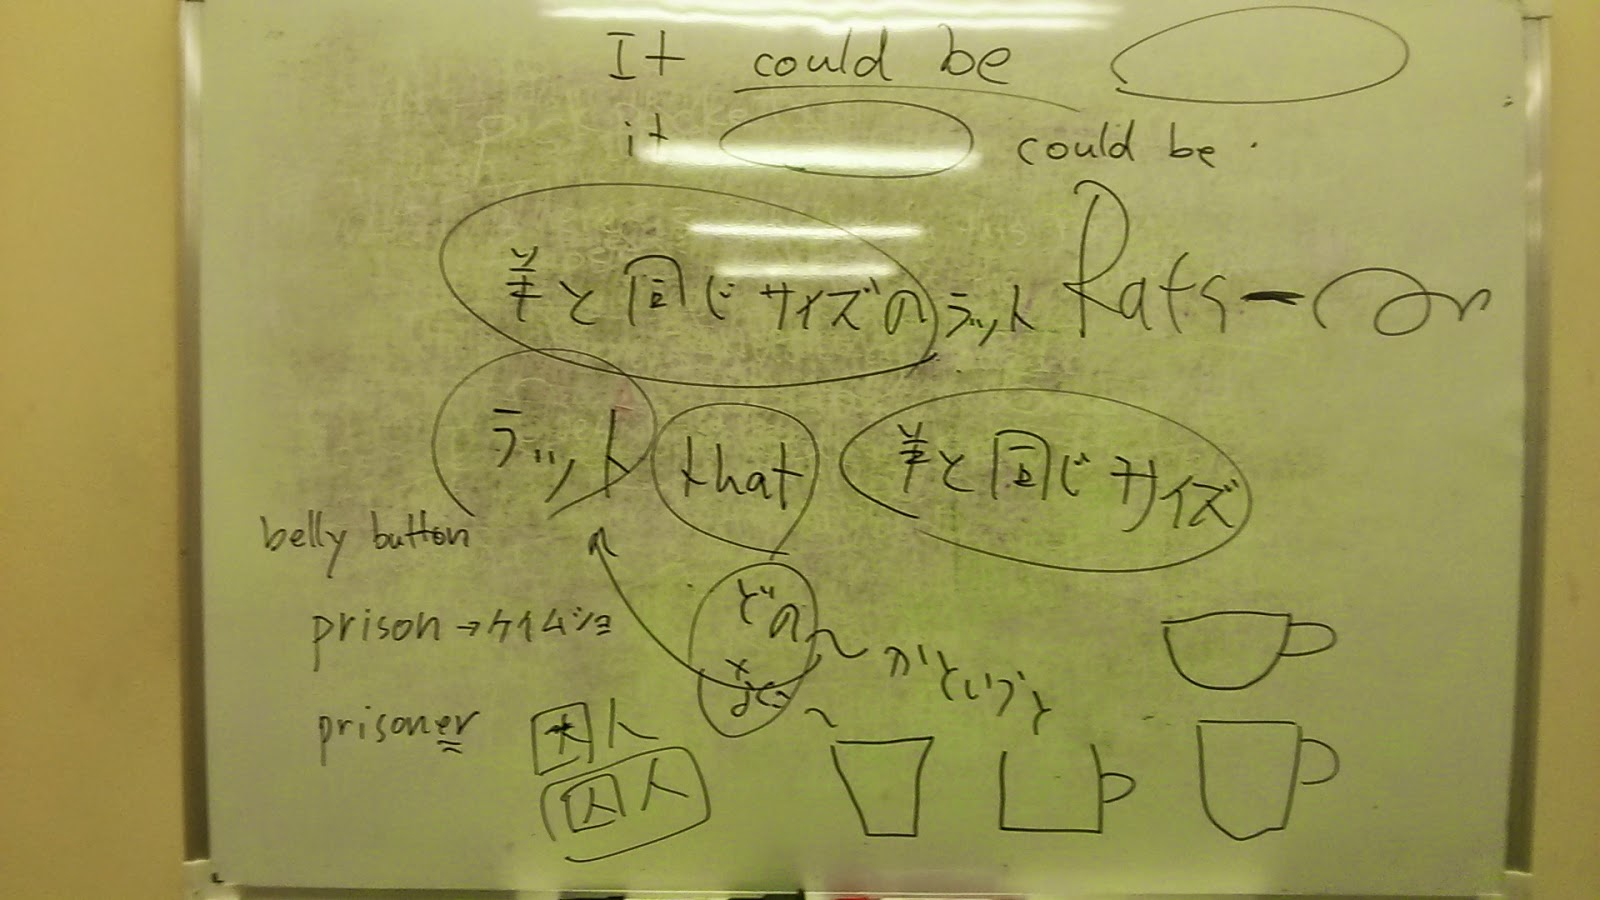 It could be
it could be.
羊と同じサイズのラット Rats
ラット that 羊と同じサイズ
belly button
どの〜かというと
prison→ケイムショ
prisoner 困人
囚人